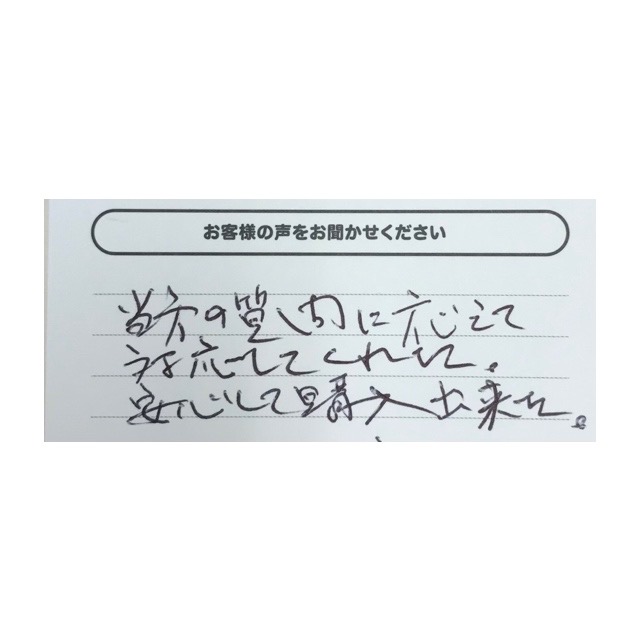 お客様の声をお聞かせください
当方の質問に応えて
対応してくれた。
安心して購入出来た。